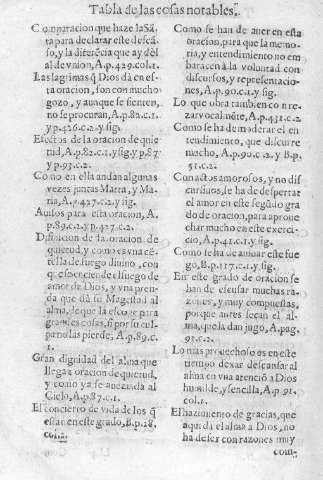 Tabla de las cosas notables.
Comparacion que haze la Sã
ta para declarar este descã
so, y la diferẽcia que ay del
al de vnion, A.p.429.col.1.
Las lagrimas q̃ Dios dà en es-
ta oracion, son con mucho
gozo, y aunque se sienten,
no se procuran, A.p.82.c.1.
y p.426.c.2. y sig.
Efectos de la oracion de quie
tud, A.p.82.c.1. y sig. y p.87
y p.93.c.2.
Como en ella andan algunas
vezes juntas Marta, y Ma-
ria, A.p.427.c.2. y sig.
Auisos para esta oracion, A.
p.89.c.2. y p.427.c.2.
Difinicion de la oracion de
quietud, y como es vna cẽ-
tella de fuego diuino, con
que se enciende el fuego de
amor de Dios, y vna pren-
da que dà su Magestad al
alma, de que la escoge para
grandes cosas, si por su cul-
pa no las pierde, A.p.89.c.
1.
Gran dignidad del alma que
llega a oracion de quietud,
y como ya se auezinda al
Cielo, A.p.87.c.1.
El concierto de vida de los q̃
estan en este grado, B.p.28.
col.2.
Como se han de auer en esta
oracion, para que la memo-
ria, y entendimiento no em
baracen à la voluntad con
discursos, y representacio-
nes, A.p.90.c.2. y sig.
Lo que obra tambien con re-
zar vocalmẽte, A.p.431.c.2
Como se ha de moderar el en-
tendimiento, que discurre
mucho, A.p.90.c.2. y B.p.
51.c.2.
Con actos amorosos, y no dis
cursiuos, se ha de despertar
el amor en este segũdo gra
do de oracion, para aproue
char mucho en este exerci-
cio, A.p.41.c.1. y sig.
Como se ha de auiuar este fue
go, B.p.117.c.1. y sig.
En este grado de oracion se
han de escusar muchas ra-
zones, y muy compuestas,
porque antes secan el al-
ma, que la dan jugo, A.pag.
93.c.2.
Lo mas prouechoso es en este
tiempo dexar descansar al
alma en vna atenciõ à Dios
humilde, y sencilla, A.p.91.
col.1.
El hazimiento de gracias, que
aqui dà el alma a Dios, no
ha de ser con razones muy
com-